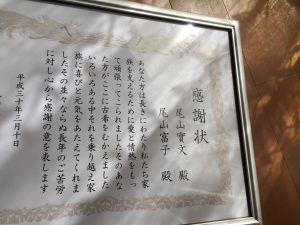 感謝状
尾山實文 殿
尾山富子 殿
あなた方は長きにわたり私たち家
族を支えるために愛と情熱をもっ
て頑張ってこられましたそのあな
た方がここに古希をむかえました
いろいろある中それを乗り越え家
族に喜びと元気をあたえてくれま
したその並々ならぬ長年のご苦労
に対し心から感謝の意を表します
平成三十年三月十日